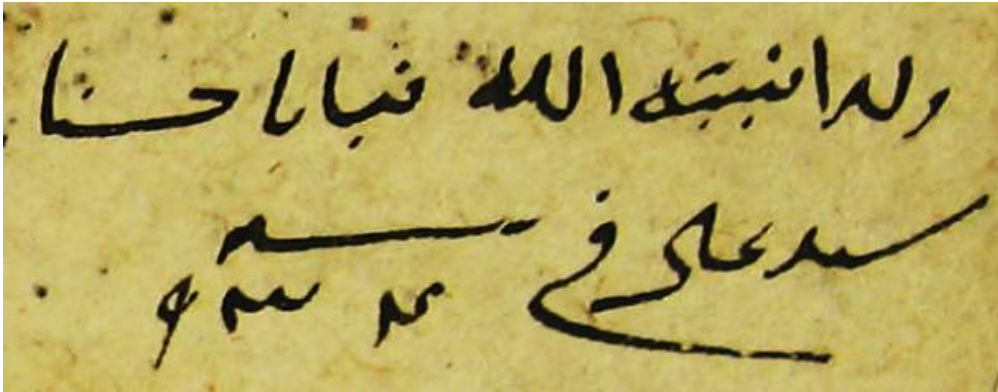 ولد انبته الله نباتا حسنا
سيد على فى سنه